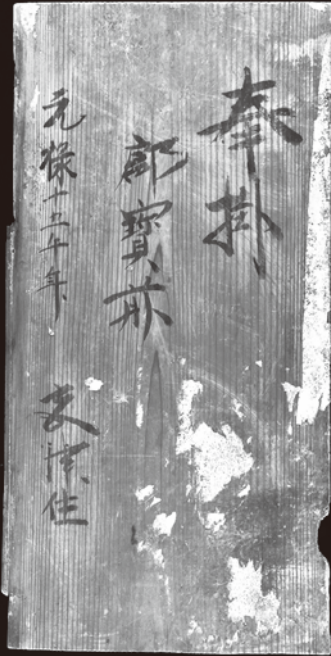 奉掛
御寶前
元禄十五午年 津住